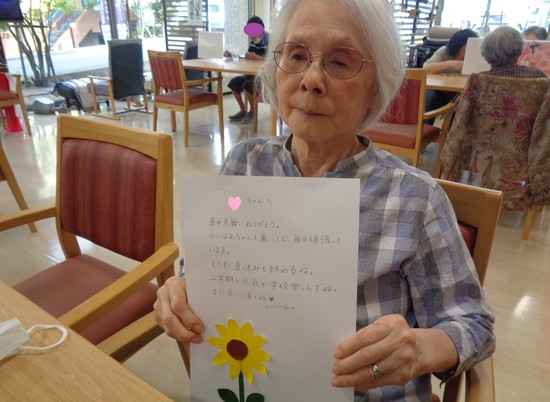 ちゃんへ
暑中見舞いありがとう。
ひいばあちゃんも暑いけど、毎日頑張って
います。
もうすぐ夏休みも終わるね。
二学期も元気で学校楽しんでね。
また会いに来てね♥